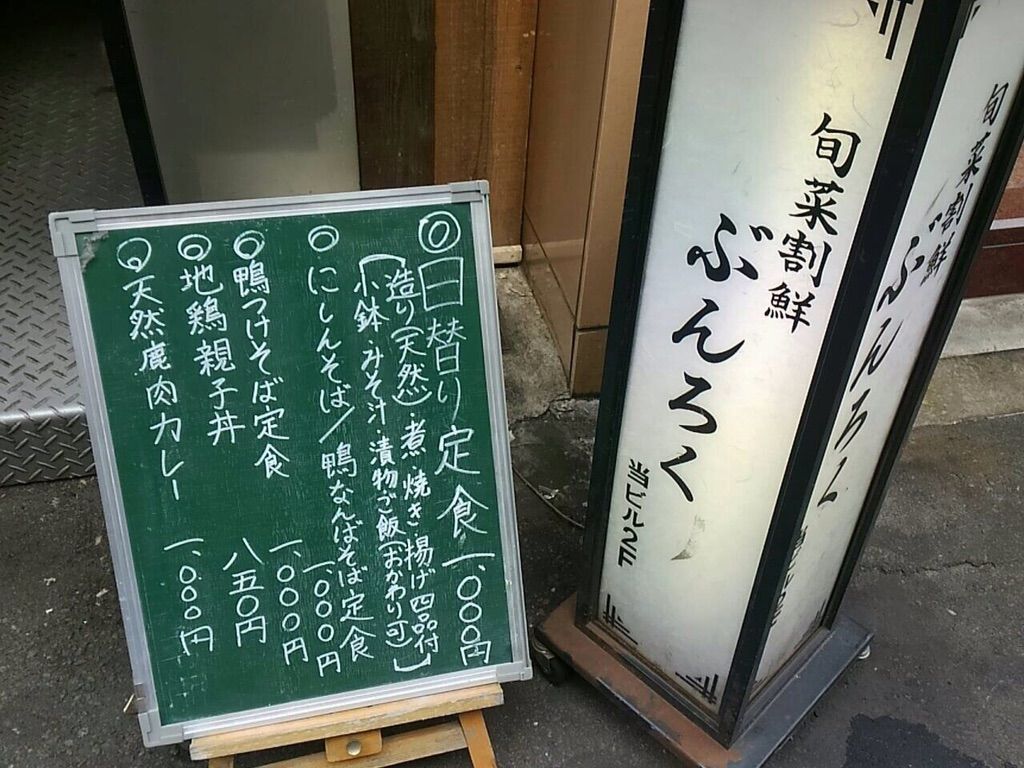 ◎日替り定食 一、〇〇〇円
造り(天然)・煮・焼き・揚げ四品付
小鉢・みそ汁・漬物ご飯(おかわり可)
◎にしんそば/鴨なんばそば定食 一、〇〇〇円
◎鴨つけそば定食 一、〇〇〇円
◎地鶏親子丼 八五〇円
◎天然鹿肉カレー 一、〇〇〇円
旬菜割鮮
ぶんろく
当ビル2F
旬菜割鮮
ぶんろく